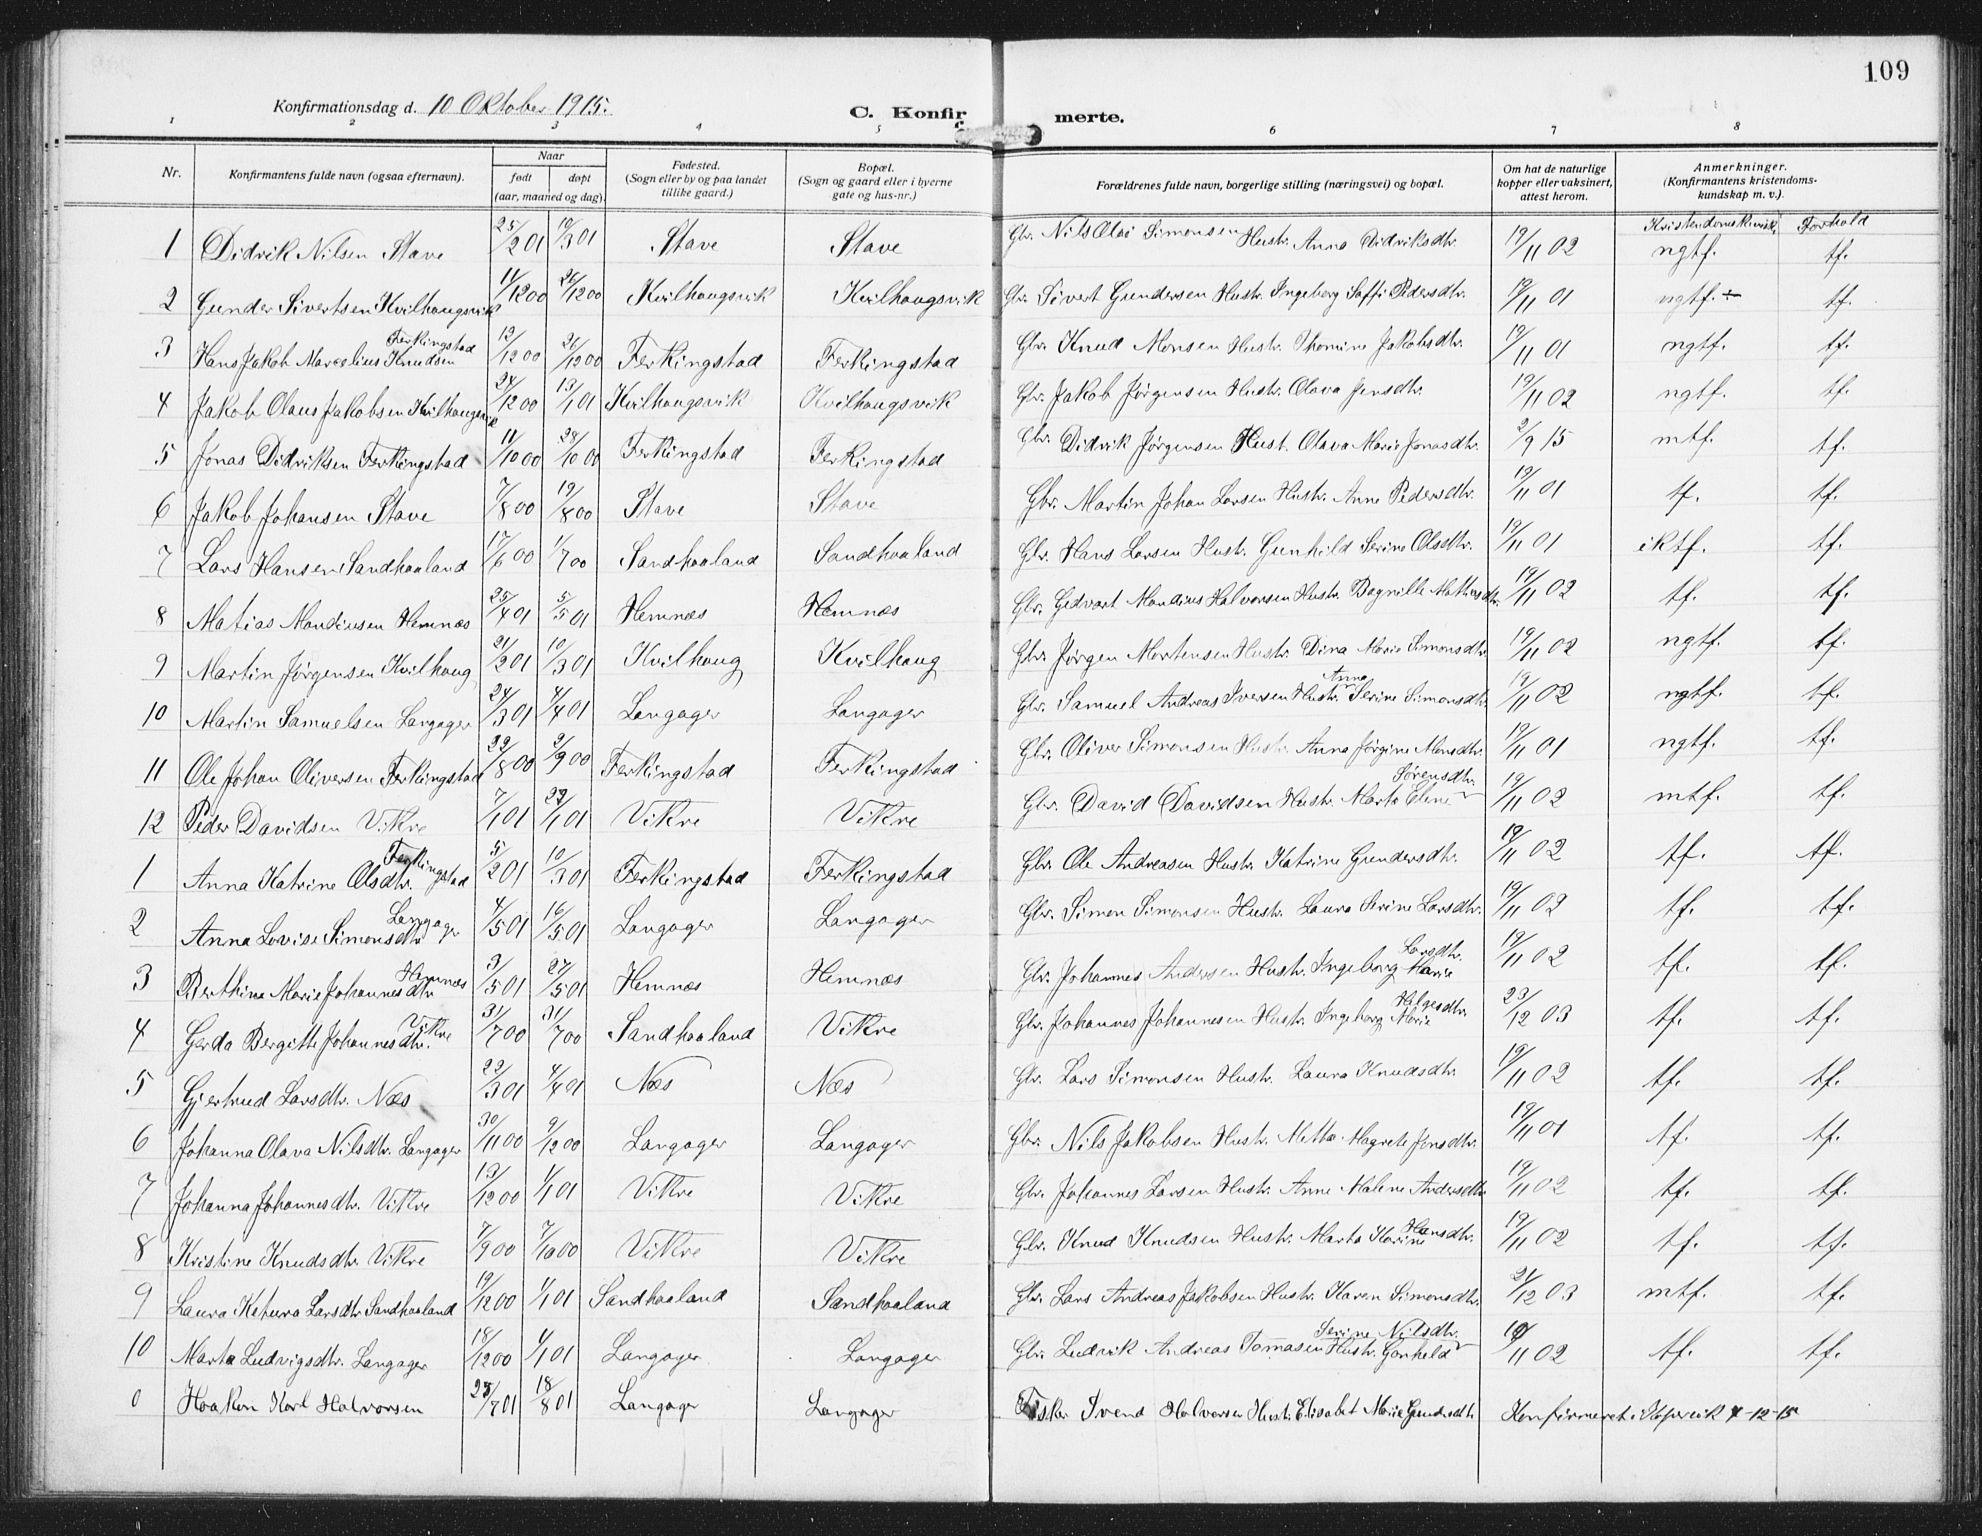 109
Konfirmationsdag d. 10 Oktober 1915.
C. Konfirmerte.
1 2 3 4 5 6 7 8
Nr. Konfirmantens fulde navn (ogsaa efternavn). Naar født døpt (aar, maaned og dag). Fødested. (Sogn eller by og paa landet tillike gaard.) Bopæl. (Sogn og gaard eller i byerne gate og hus-nr.) Forældrenes fulde navn, borgerlige stilling (næringsvei) og bopæl. Om hat de naturlige kopper eller vaksinert, attest herom. Anmerkninger. (Konfirmantens kristendoms- kundskap m. v.).
Forhold
1 Didrik Nilsen Stave 25/2 01 10/3 01 Stave Stave Gbr. Nils Olai Simonsen Hustr. Anna Didriksdtr. 19/11 02 ngtf. tf.
2 Gunder Sivertsen Kvilhaugsvik 11/12 00 26/12 00 Kvilhaugsvik Kvilhaugsvik Gbr. Sivert Gundersen Hustr. Ingeborg Soffi Pedersdtr. 19/11 01 ngtf. ÷ tf.
3 Hans Jakob Marselius Knudsen Ferkingstad 12/12 00 26/12 00 Ferkingstad Ferkingstad Gbr. Knud Monsen Hustr. Thomine Jakobsdtr. 19/11 01 ngtf. tf.
4 Jakob Olaus Jakobsen Kvilhaugsvik 24/12 00 13/1 01 Kvilhaugsvik Kvilhaugsvik Gbr. Jakob Jørgensen Hustr. Olava Jensdtr. 19/11 02 ngtf. tf.
5 Jonas Didriksen Ferkingstad 11/10 00 28/10 00 Ferkingstad Ferkingstad Gbr. Didrik Jørgensen Hust. Olava Marie Jonasdtr. 2/9 15 mtf. tf.
6 Jakob Johansen Stave 7/8 00 19/8 00 Stave Stave Gbr. Martin Johan Larsen Hustr. Anne Pedersdtr. 19/11 01 tf. tf.
7 Lars Hansen Sandhaaland 17/6 00 1/7 00 Sandhaaland Sandhaaland Gbr. Hans Larsen Hustr. Gunhild Serine Olsdtr. 19/11 01 iktf. tf.
8 Matias Mandiusen Hemnæs 25/4 01 5/5 01 Hemnæs Hemnæs Gbr. Gedvart Mandius Halvorsen Hustr. 19/11 02 tf. tf.
9 Martin Jørgensen Kvilhaug 21/2 01 10/3 01 Kvilhaug Kvilhaug Gbr. Jørgen Mortensen Hustr. Dina Marie Simonsdtr. 19/11 02 ngtf. tf.
10 Martin Samuelsen Langager 24/3 01 4/4 01 Langager Langager Gbr. Samuel Andreas Iversen Hustr. Anna Serine Simonsdtr. 19/11 02 ngtf. tf.
11 Ole Johan Oliversen Ferkingstad 22/8 00 2/9 00 Ferkingstad Ferkingstad Gbr. Oliver Simonsen Hustr. Anna Jørgine Monsdtr. 19/11 01 ngtf. tf.
12 Peder Davidsen Vikre 7/1 01 /1 01 Vikre Vikre Gbr. David Davidsen Hustr. Marta Elene Sørensdtr. 19/11 02 mtf. tf.
1 Anna Katrine Olsdtr. Ferkingstad 5/2 01 10/3 01 Ferkingstad Ferkingstad Gbr. Ole Andreasen Hustr. Katrine Gundersdtr. 19/11 02 tf. tf.
2 Anna Lovise Simonsdtr. Langager 4/5 01 16/5 01 Langager Langager Gbr. Simon Simonsen Hustr. Laura Serine Larsdtr. 19/11 02 tf. tf.
3 Berthine Marie Johannesdtr. Hemnæs 3/5 01 27/5 01 Hemnæs Hemnæs Gbr. Johannes Andersen Hustr. Ingeborg Marie Larsdtr. 19/11 02 tf. tf.
4 Gerda Bergitte Johannesdtr. Vikre 31/7 00 31/7 00 Sandhaaland Vikre Gbr. Johannes Johannesen Hustr. Ingeborg Marie Helgesdtr. 23/12 03 tf. tf.
5 Gjertrud Larsdtr. Næs 22/3 01 4/4 01 Næs Næs Gbr. Lars Simonsen Hustr. Laura Knudsdtr. 19/11 02 tf. tf.
6 Johanna Olava Nilsdtr. Langager 30/11 00 9/12 00 Langager Langager Gbr. Nils Jakobsen Hustr. Metta Magrete Jonsdtr. 19/11 01 tf. tf.
7 Johanna Johannesdtr. Vikre 13/12 00 1/1 01 Vikre Vikre Gbr. Johannes Larsen Hustr. Anne Malene Andersdtr. 19/11 02 tf. tf.
8 Kristine Knudsdtr. Vikre 7/9 00 7/10 00 Vikre Vikre Gbr. Knud Knudsen Hustr. Marta Karine Hansdtr. 19/11 02 tf. tf.
9 Laura Katura Larsdtr. Sandhaaland 19/12 00 1/1 01 Sandhaaland Sandhaaland Gbr. Lars Andreas Jakobsen Hustr. Karen Simonsdtr. 21/12 03 mtf. tf.
10 Marta Ludvigsdtr. Langager 18/12 00 1/1 01 Langager Langager Gbr. Ludvik Andreas Tomasen Hustr. Gonheld Serine Nilsdtr. 19/11 02 tf. tf.
0 Haakon Karl Halvorsen /7 01 18/8 01 Langager Langager Fisker Svend Halvorsen Hustr. Elisabet Marie Gundersdtr. Konfirmeret i Kopervik 4-12-15